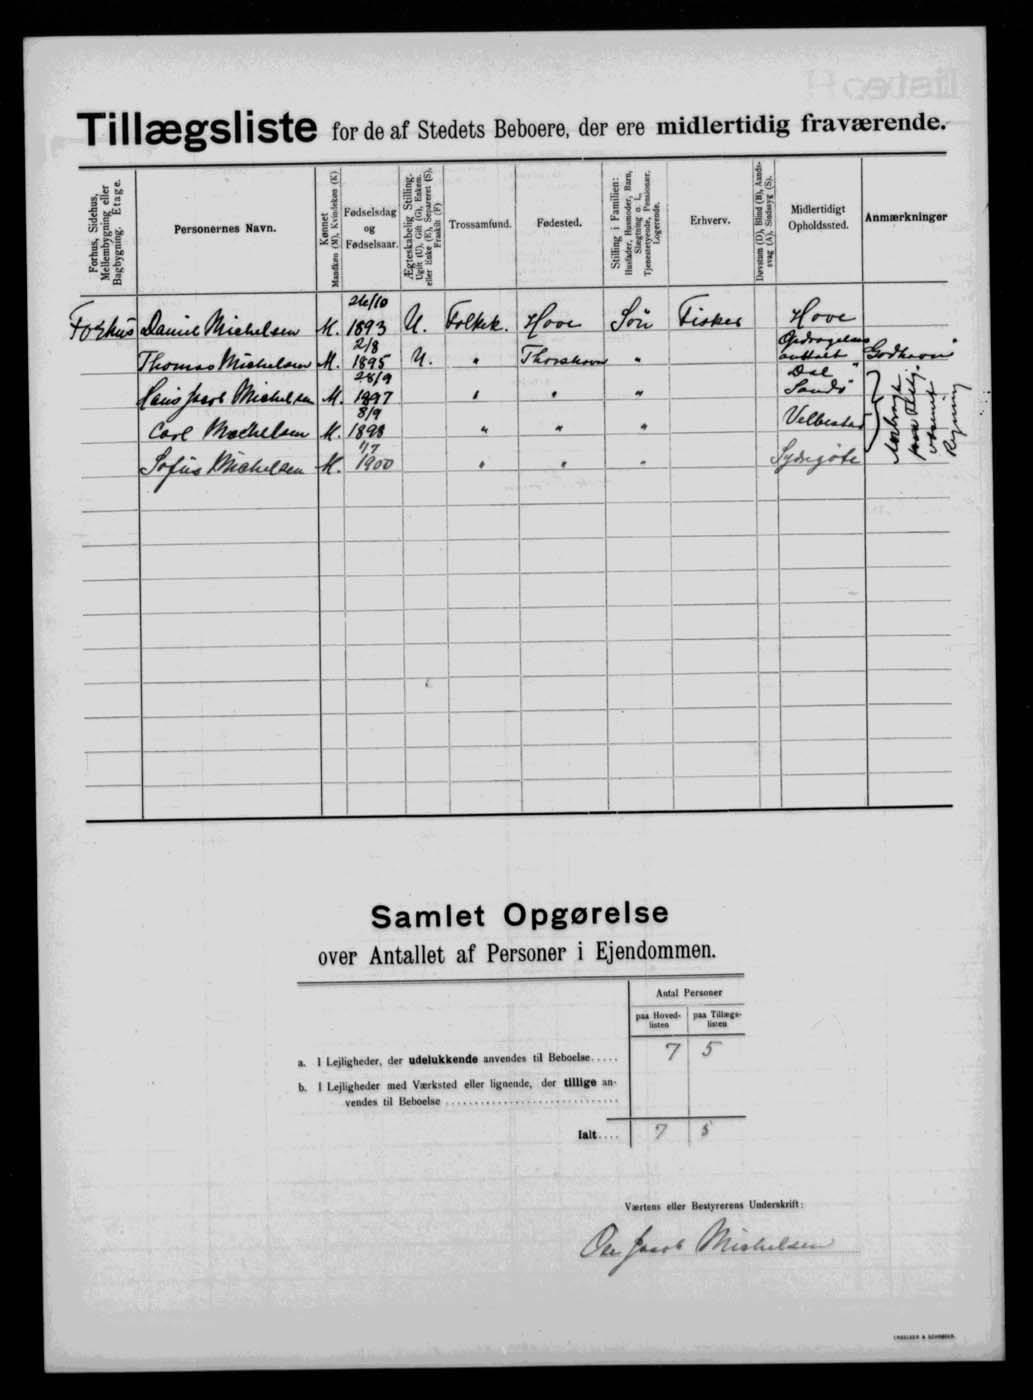 Tillægsliste for de af Stedets Beboere, der ere midlertidig fraværende.
Forhus, Sidehus, Mellembygning eller Bagbygning. Etage.
Personernes Navn.
Kønnet
Mandkøn (M), Kvindekøn (K)
Fødselsdag
og
Fødselsaar.
Ægteskabelig Stilling.
Ugift (U), Gift (G), Enkem. eller Enke (E), Separeret (S), Fraskilt (F)
Trossamfund.
Fødested.
Stilling i Familien:
Husfader, Husmoder, Barn, Slægtning o. l., Tjenestetyende, Pensionær, Logerende.
Erhverv.
Døvstum (D), Blind (B), Aandssvag (A), Sindssyg (S).
Midlertidigt
Opholdssted.
Anmærkninger
Forhus Daniel Michelsen M. 26/10 1893 U. Folkek. Hove Søn Fisker Hove
Thomas Michelsen M. 2/8 1895 U. " Thorshavn " Opdragelses anstalt "Godhavn"
Hans Jacob Michelsen M. 28/9 1897 " " " Dal " Sandø
Carl Michelsen M. 8/9 1898 " " " Velbestad
Sofus Michelsen M. 1/7 1900 " " " Sydregøte
Samlet Opgørelse
over Antallet af Personer i Ejendommen.
Antal Personer
paa Hoved-
listen
paa Tillægs-
listen
a. I Lejligheder, der udelukkende anvendes til Beboelse..... 7 5
b. I Lejligheder med Værksted eller lignende, der tillige an-
vendes til Beboelse
Ialt.... 7 5
Værtens eller Bestyrerens Underskrift:
Jacob Michelsen